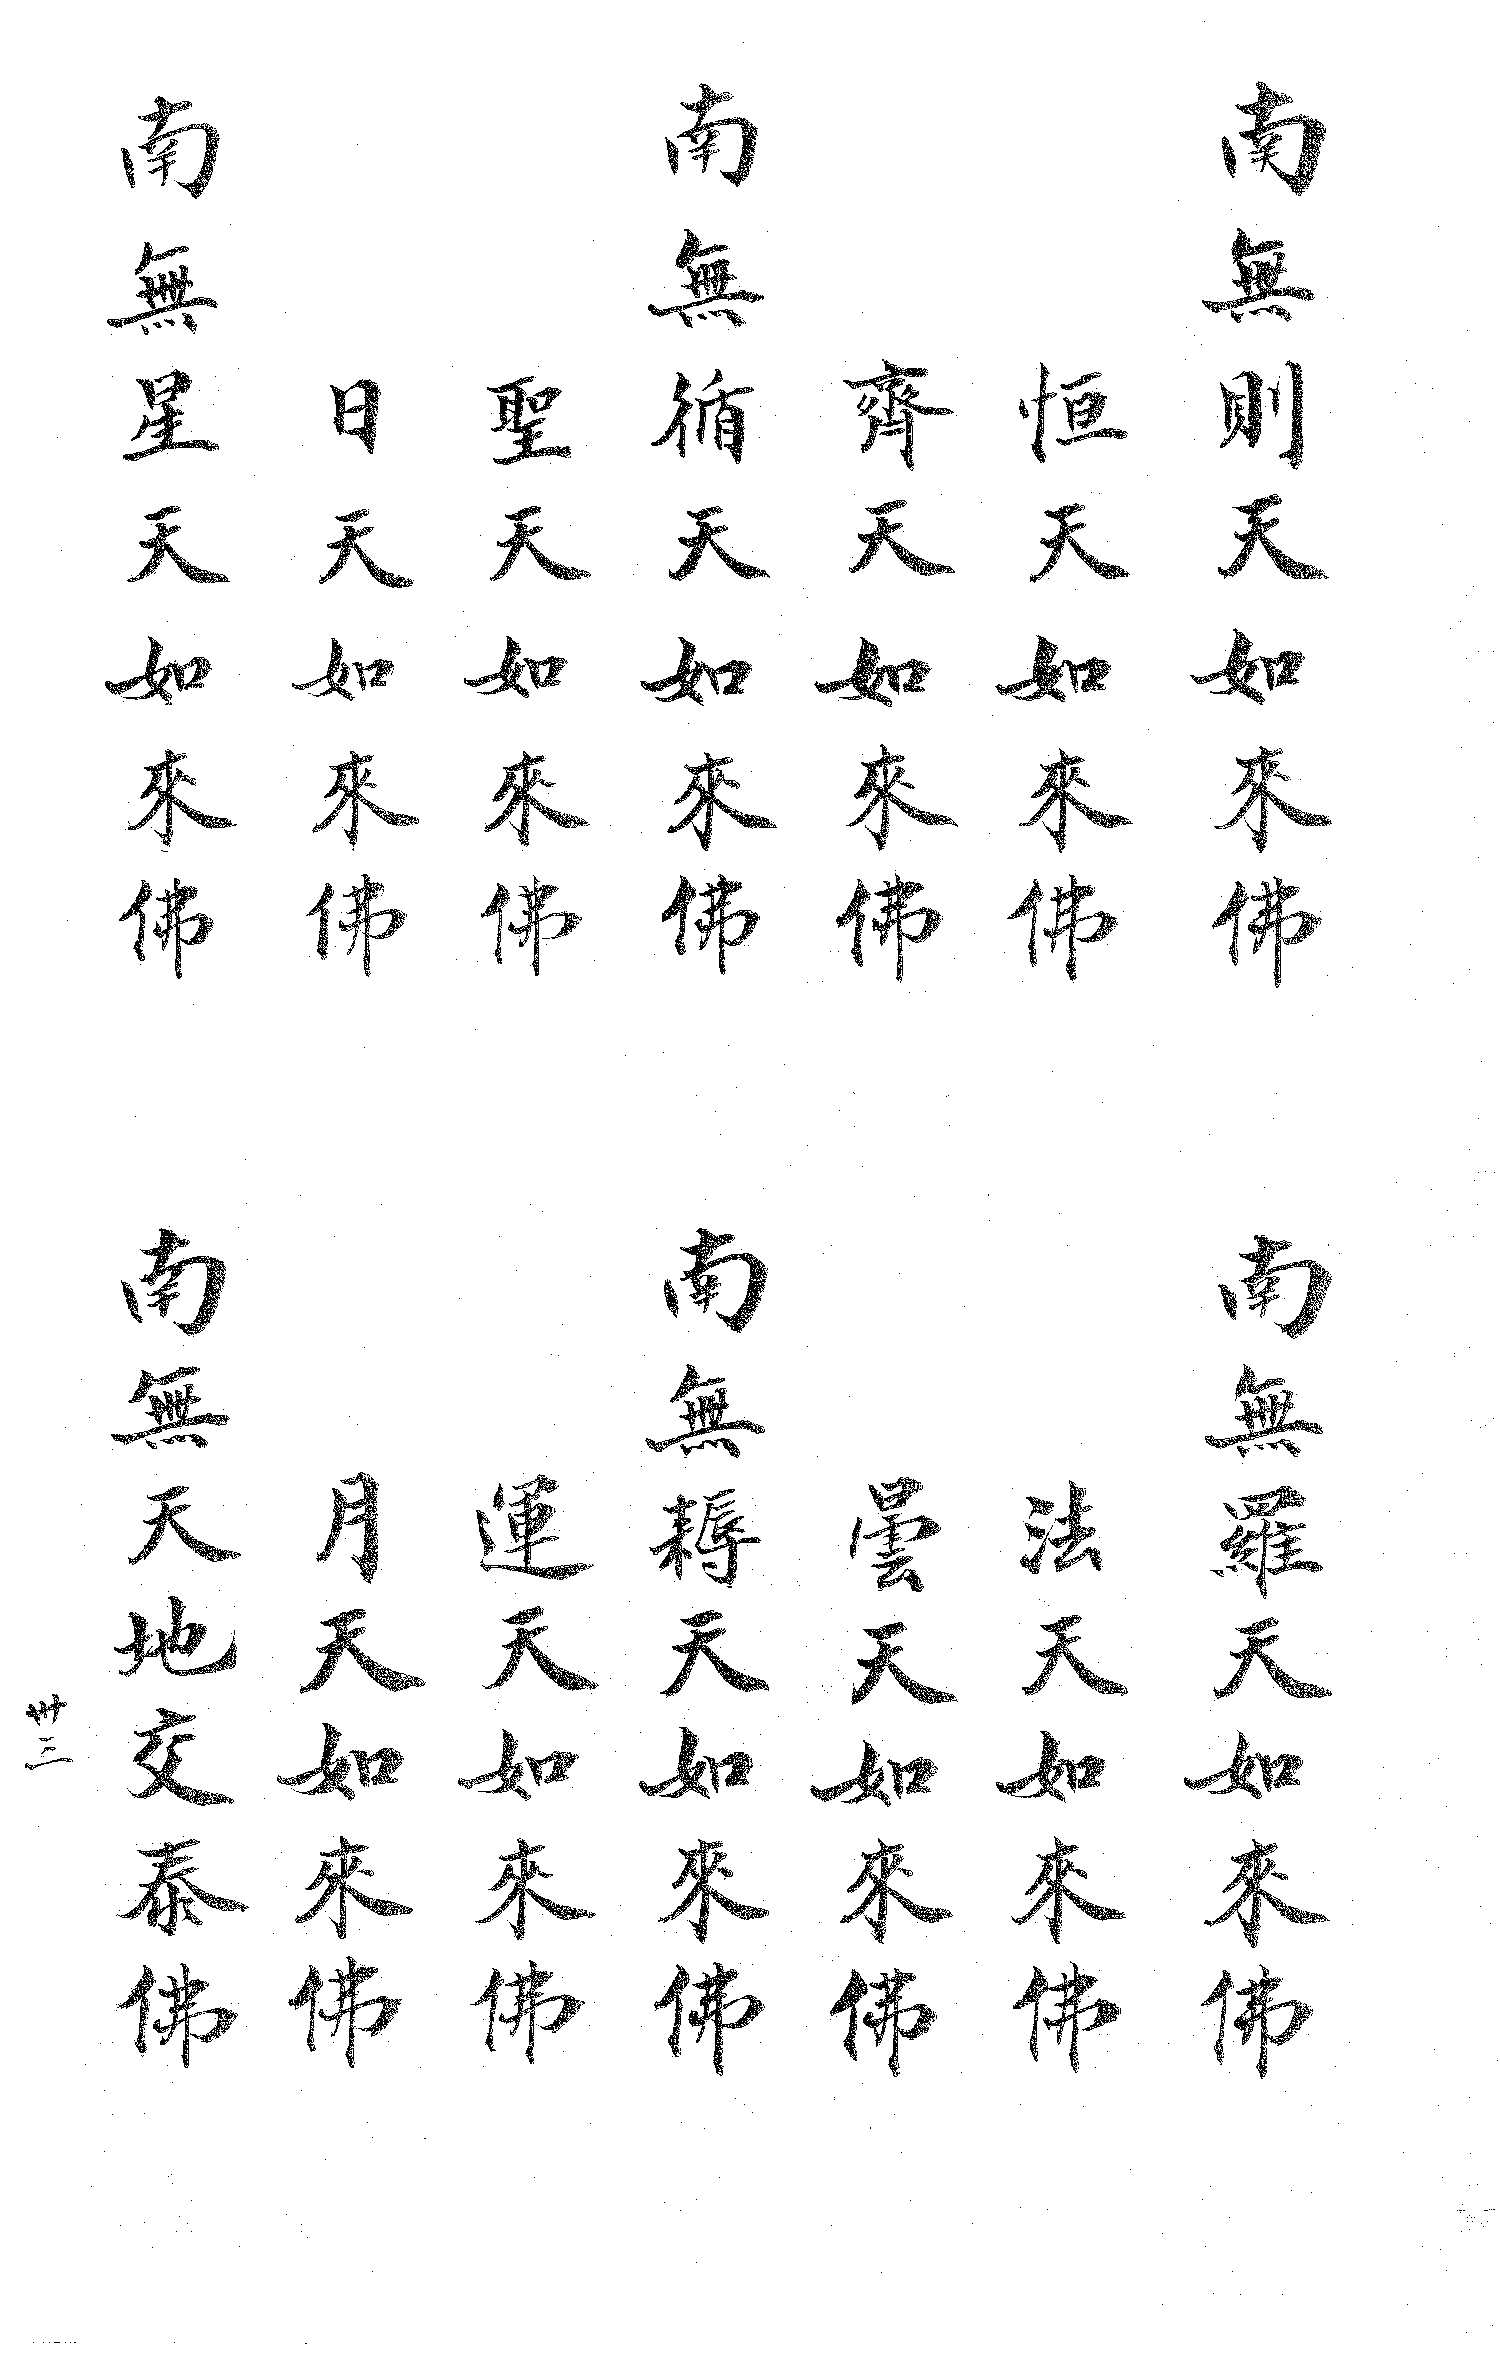 南無則天如來佛
南無羅天如來佛
恒天如來佛
法天如來佛
齊天如來佛
曇天如來佛
南無循天如來佛
南無耨天如來佛
聖天如來佛
運天如來佛
日天如來佛
月天如來佛
南無星天如來佛
南無天地交泰佛
卅三